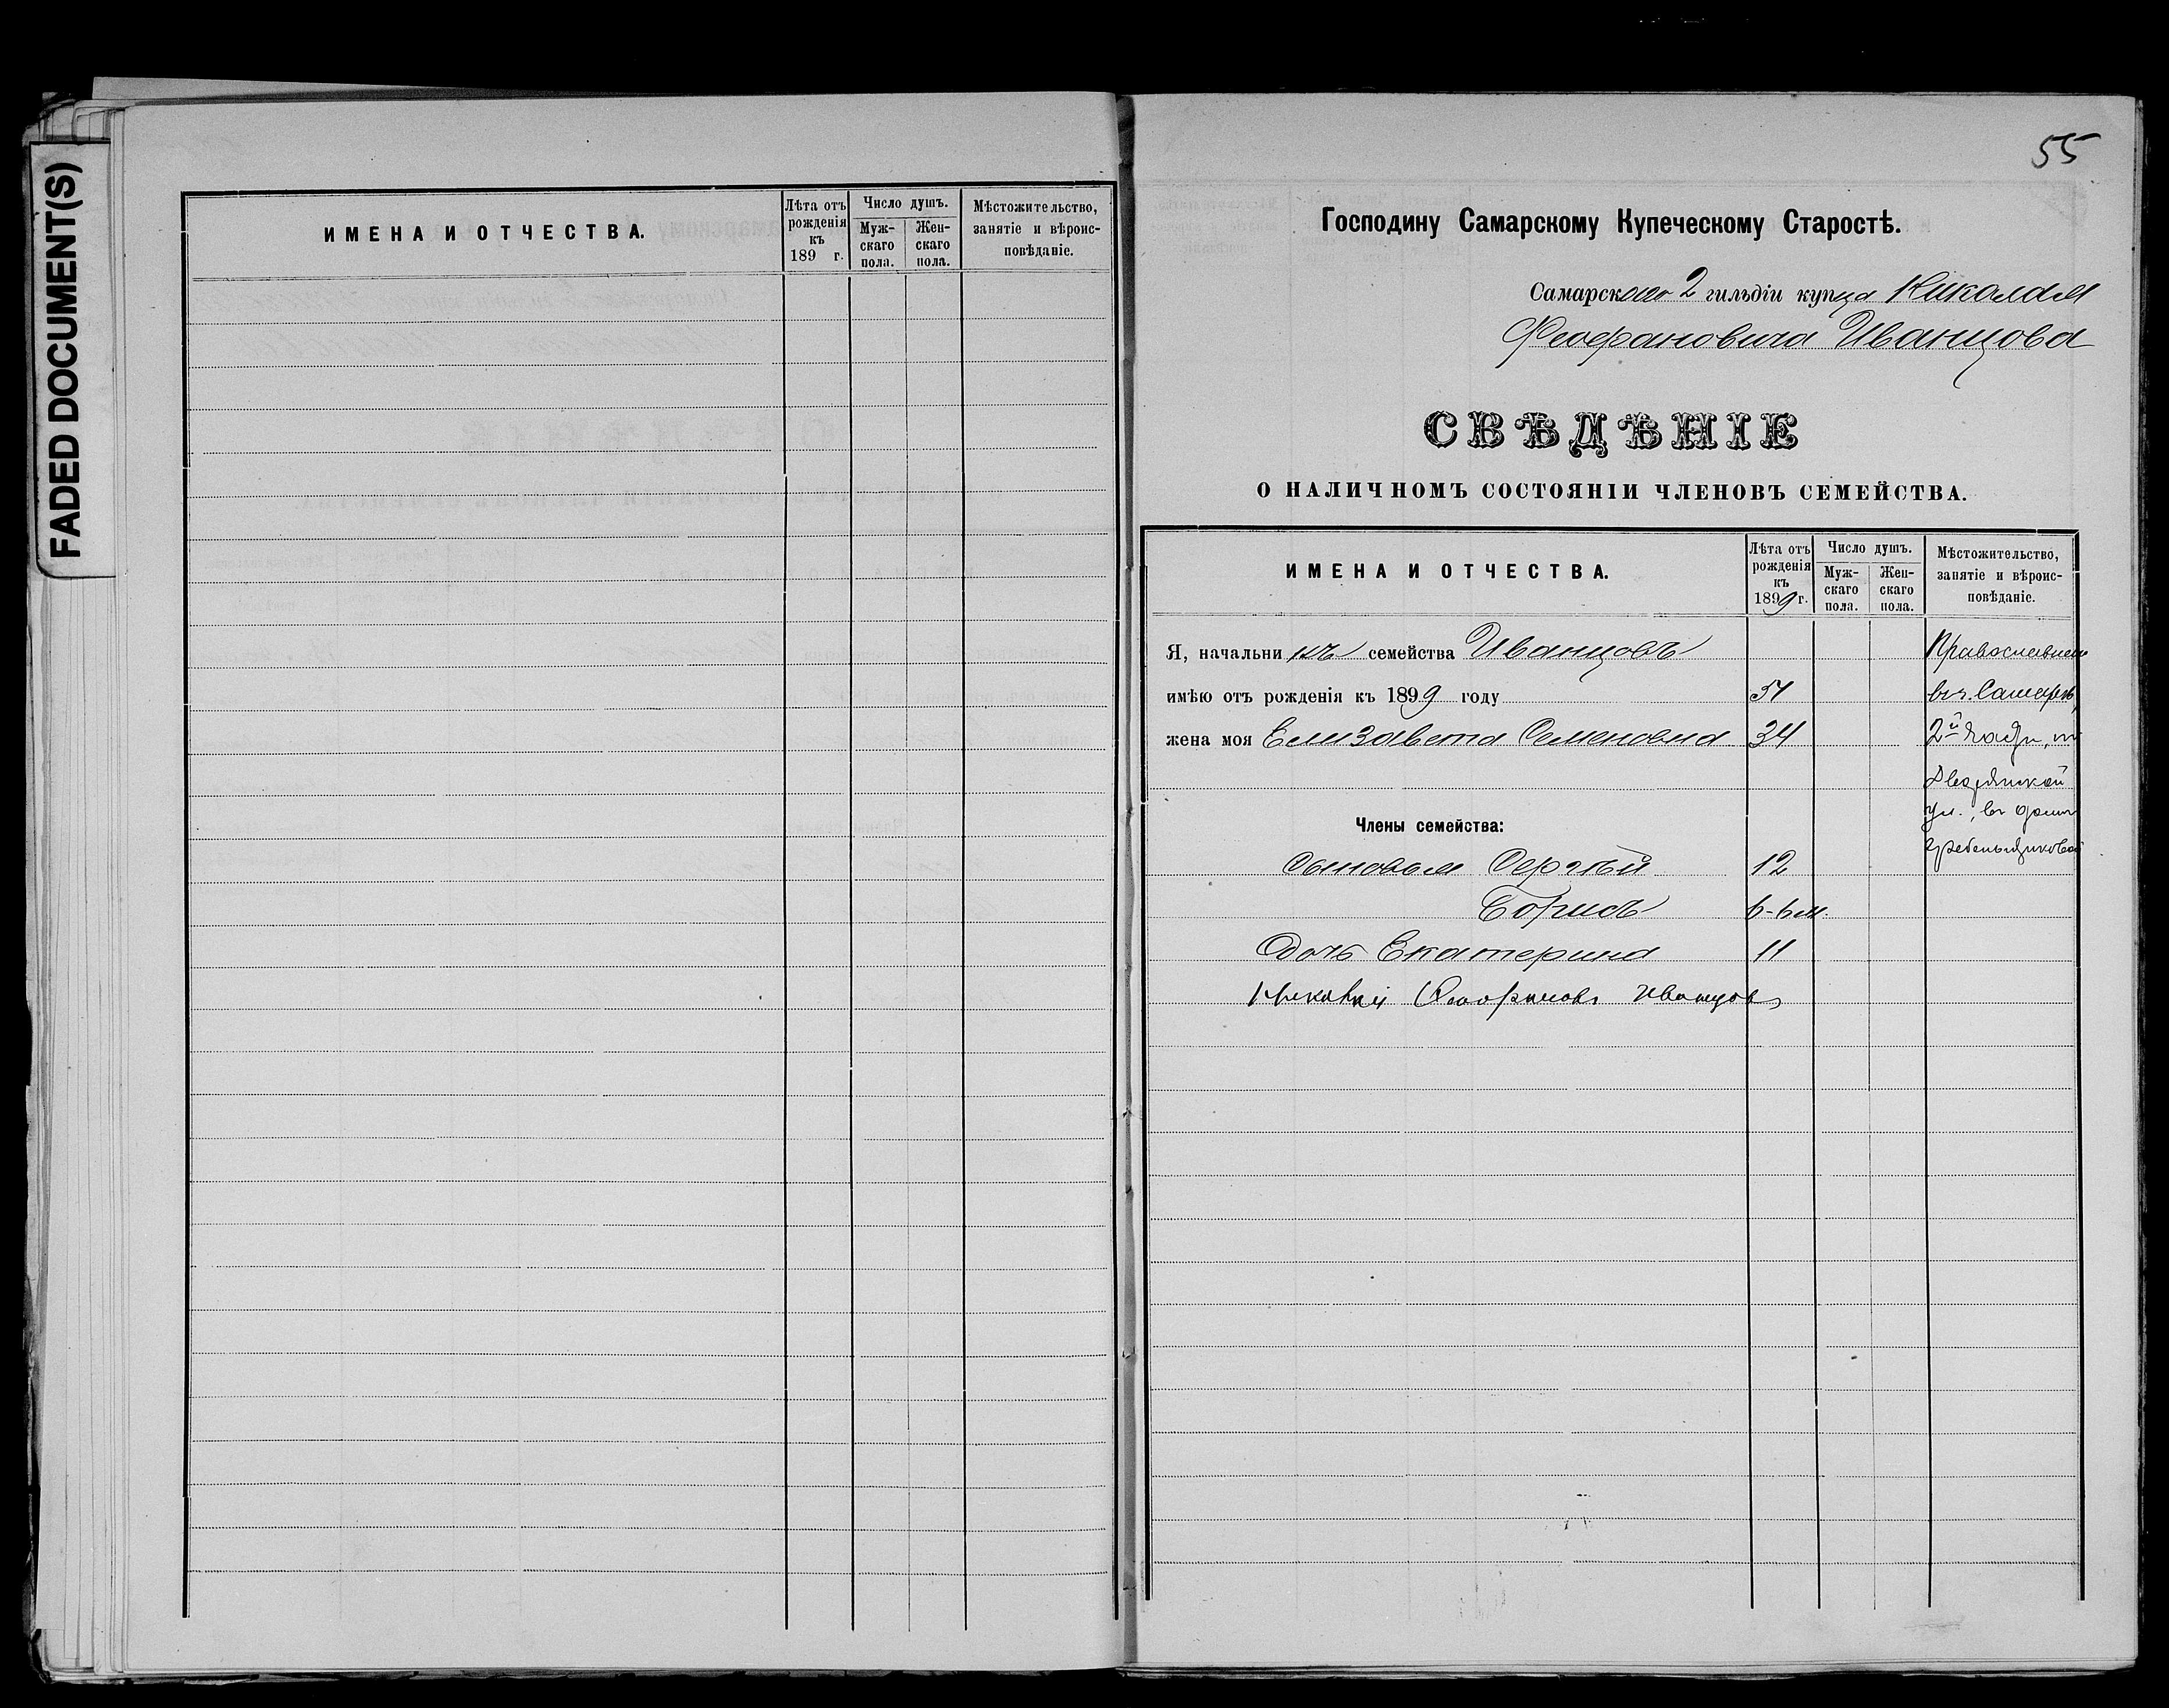 FADED DOCUMENT(S)
ИМЕНА И ОТЧЕСТВА.
Лѣта отъ рожденія къ 189 г.
Число душъ.
Муж-скаго пола.
Жен-скаго пола.
Мѣстожительство, занятіе и вѣроис-повѣданіе.
55
Господину Самарскому Купеческому Старостѣ.
Самарскаго 2 гильдіи купца Николая
Феофановича Иванцова
СВѢДѢНІЕ
О НАЛИЧНОМЪ СОСТОЯНІИ ЧЛЕНОВЪ СЕМЕЙСТВА.
ИМЕНА И ОТЧЕСТВА.
Лѣта отъ рожденія къ 1899 г.
Число душъ.
Муж-скаго пола.
Жен-скаго пола.
Мѣстожительство, занятіе и вѣроис-повѣданіе.
Я, начальникъ семейства Иванцовъ Православнаго
имѣю отъ рожденія къ 1899 году 51 въ г. Самарѣ,
жена моя Елизавета Семеновна 34 2й части, по
Дворянской
ул., въ домѣ
Члены семейства:
Гребенщиковой
Сыновья Сергѣй 12
Борисъ 6-6 м.
Дочь Екатерина 11
Николай Феофановъ Иванцовъ